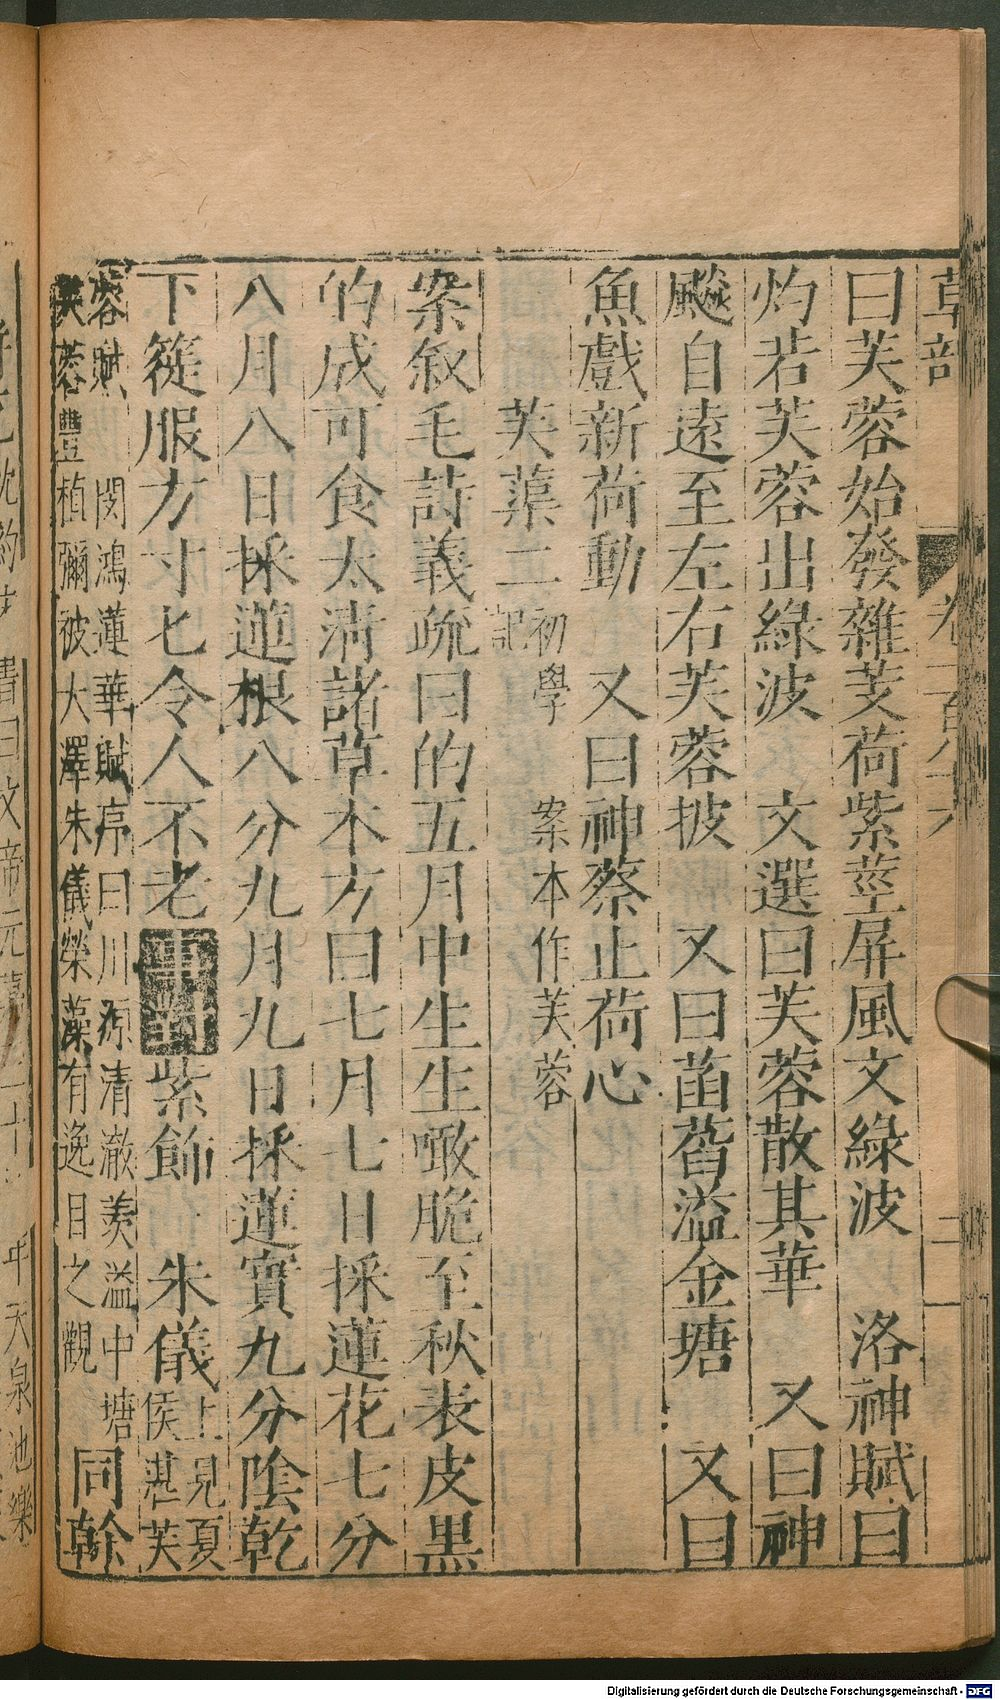 草部
卷一百八十六
二
曰芙蓉始發雜芰荷紫莖屏風文綠波　洛神賦曰
灼若芙蓉出綠波　文選曰芙蓉散其華　又曰神
飈自遠至左右芙蓉披　又曰菡萏溢金塘　又曰
魚戲新荷動　又曰神蔡止荷心
芙蕖二 初學記　案本作芙蓉
案叙毛詩義疏曰的五月中生生噉脆至秋表皮黑
的成可食太清諸草木方曰七月七日採蓮花七分
八月八日採蓮根八分九月九日採蓮實九分陰乾
下簁服方寸匕令人不老 事對 紫飾　朱儀 上見夏侯湛芙
蓉賦　閔鴻蓮華賦序曰川源清澈羨溢中塘
芙蓉豐植彌被大澤朱儀榮藻有逸目之觀 同幹
Digitalisierung gefördert durch die Deutsche Forschungsgemeinschaft - DFG